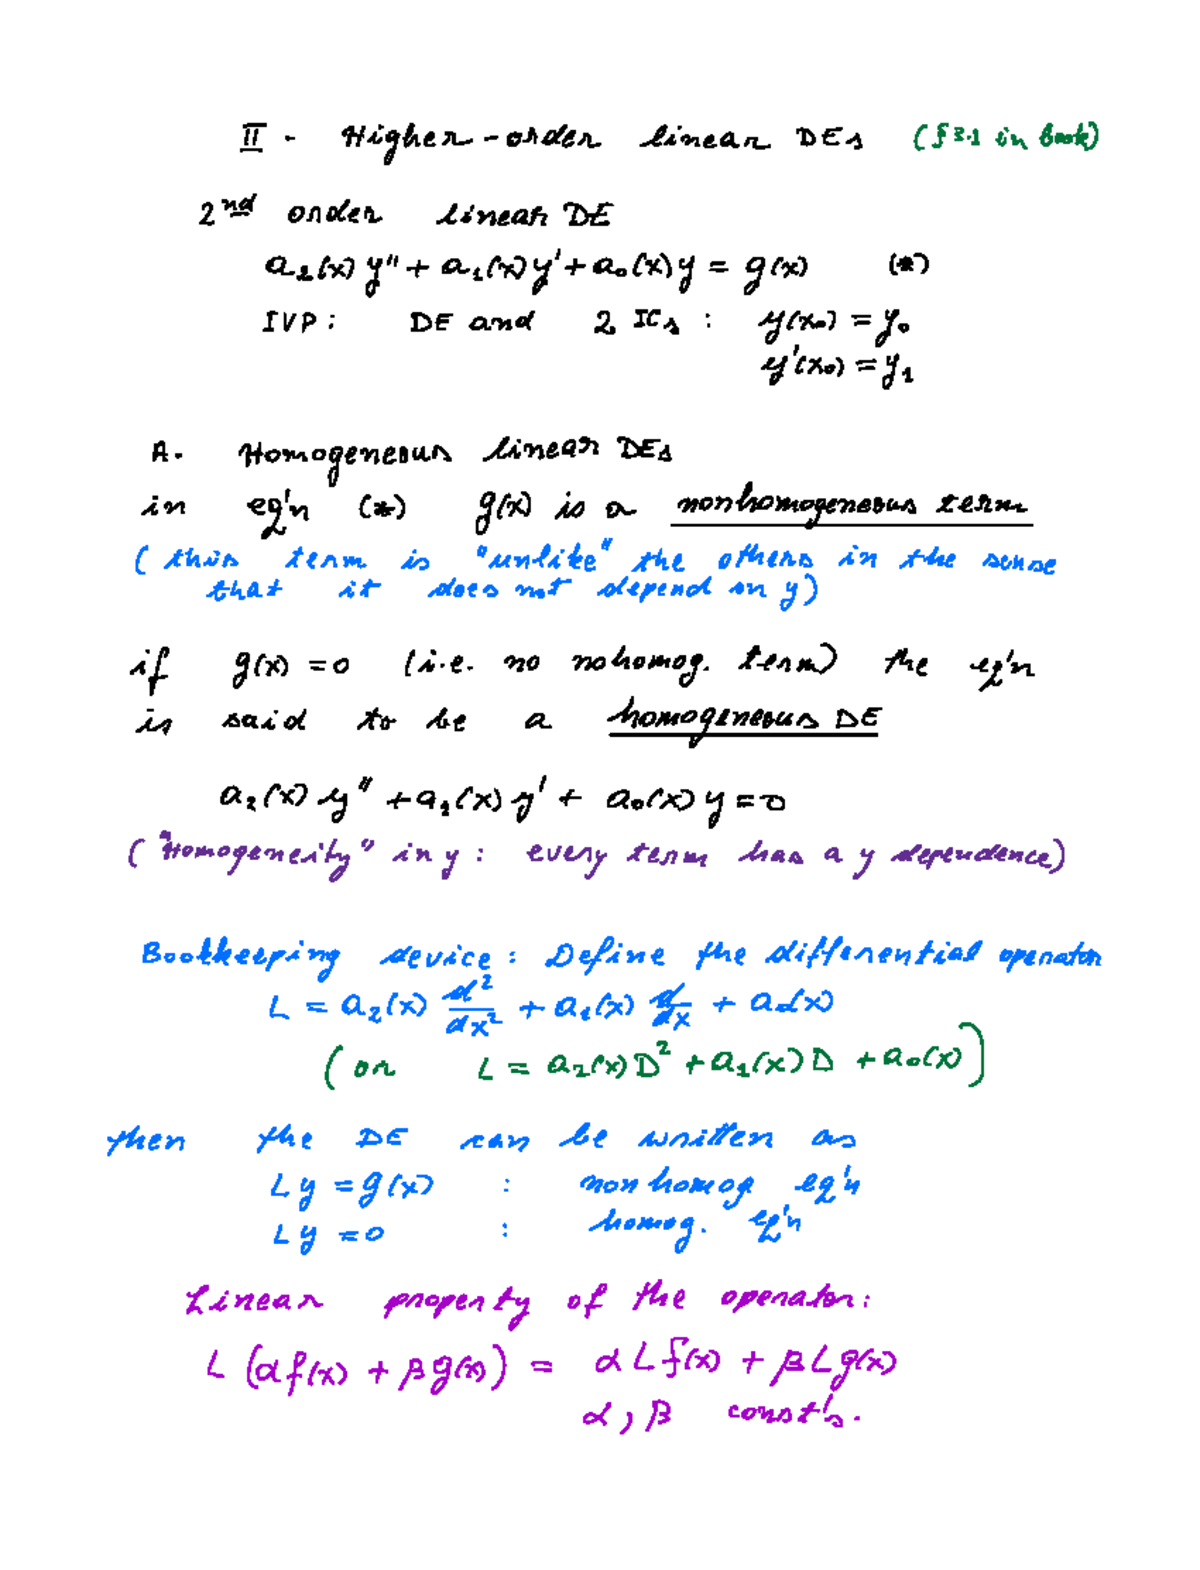 II - Higher-order linear DEs (§3.1 in book)
2nd order linear DE
a₂(x)y'' + a₁(x)y' + a₀(x)y = g(x) (*)
IVP: DE and 2 ICs: y(x₀) = y₀
y'(x₀) = y₁
A. Homogeneous linear DEs
in eq'n (*) g(x) is a nonhomogeneous term
(this term is "unlike" the others in the sense
that it does not depend on y)
if g(x) = 0 (i.e. no nohomog. term) the eq'n
is said to be a homogeneous DE
a₂(x)y'' + a₁(x)y' + a₀(x)y = 0
("Homogeneity" in y: every term has a y dependence)
Bookkeeping device: Define the differential operator
L = a₂(x) d²/dx² + a₁(x) d/dx + a₀(x)
(or L = a₂(x)D² + a₁(x)D + a₀(x))
then the DE can be written as
Ly = g(x) : nonhomog eq'n
Ly = 0 : homog. eq'n
Linear property of the operator:
L(αf(x) + βg(x)) = αLf(x) + βLg(x)
α, β const's.